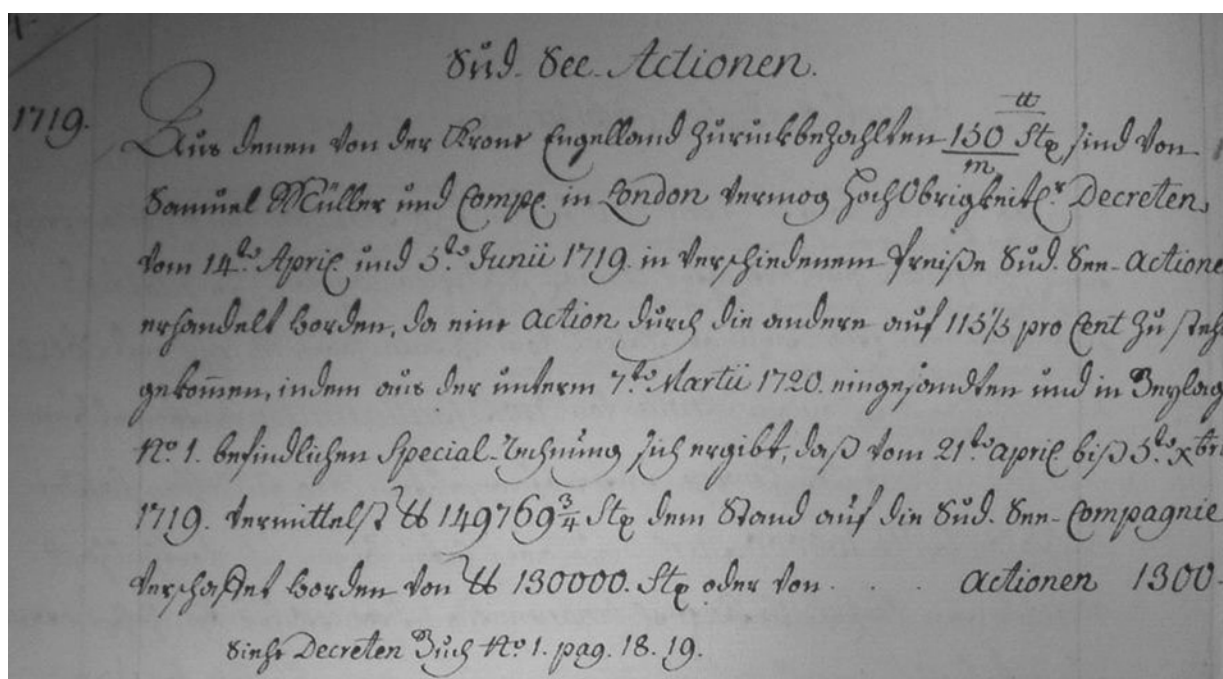 Sud. See. Actionen.
1719. Aus denen von der Krone Engelland zurukbezahlten 150/m ℔ Stp sind von
Samuel Müller und Compe. in London vermog HochObrigkeitl.r Decreten,
vom 14.to April und 5.to Junii 1719. in verschiedenem Preiße Sud. See- Actione
erhandelt worden, da eine Action durch die andere auf 115 1/5 pro Cent zu steh
gekom̄en, indem aus der unterm 7.to Martii 1720. eingesandten und in Beylag
No. 1. befindlichen Special-Rechnung sich ergibt, daß vom 21.to April biß 5.to xbr
1719. vermittelst ℔ 149769 3/4 Stp dem Stand auf die Sud. See- Compagnie
verschaffet worden von ℔ 130000. Stp oder von . . . Actionen 1300.
Siehe Decreten Buch No. 1. pag. 18. 19.